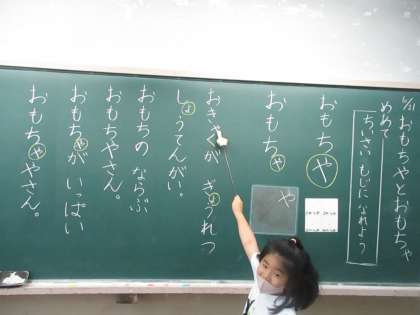 おもちやとおもちゃ
めあて
ちいさい もじに なれよう
おもちや
おもちゃ
や
おきゃくが ぎょうれつ
しょうてんがい。
おもちの ならぶ
おもちやさん。
おもちゃが いっぱい
おもちゃやさん。